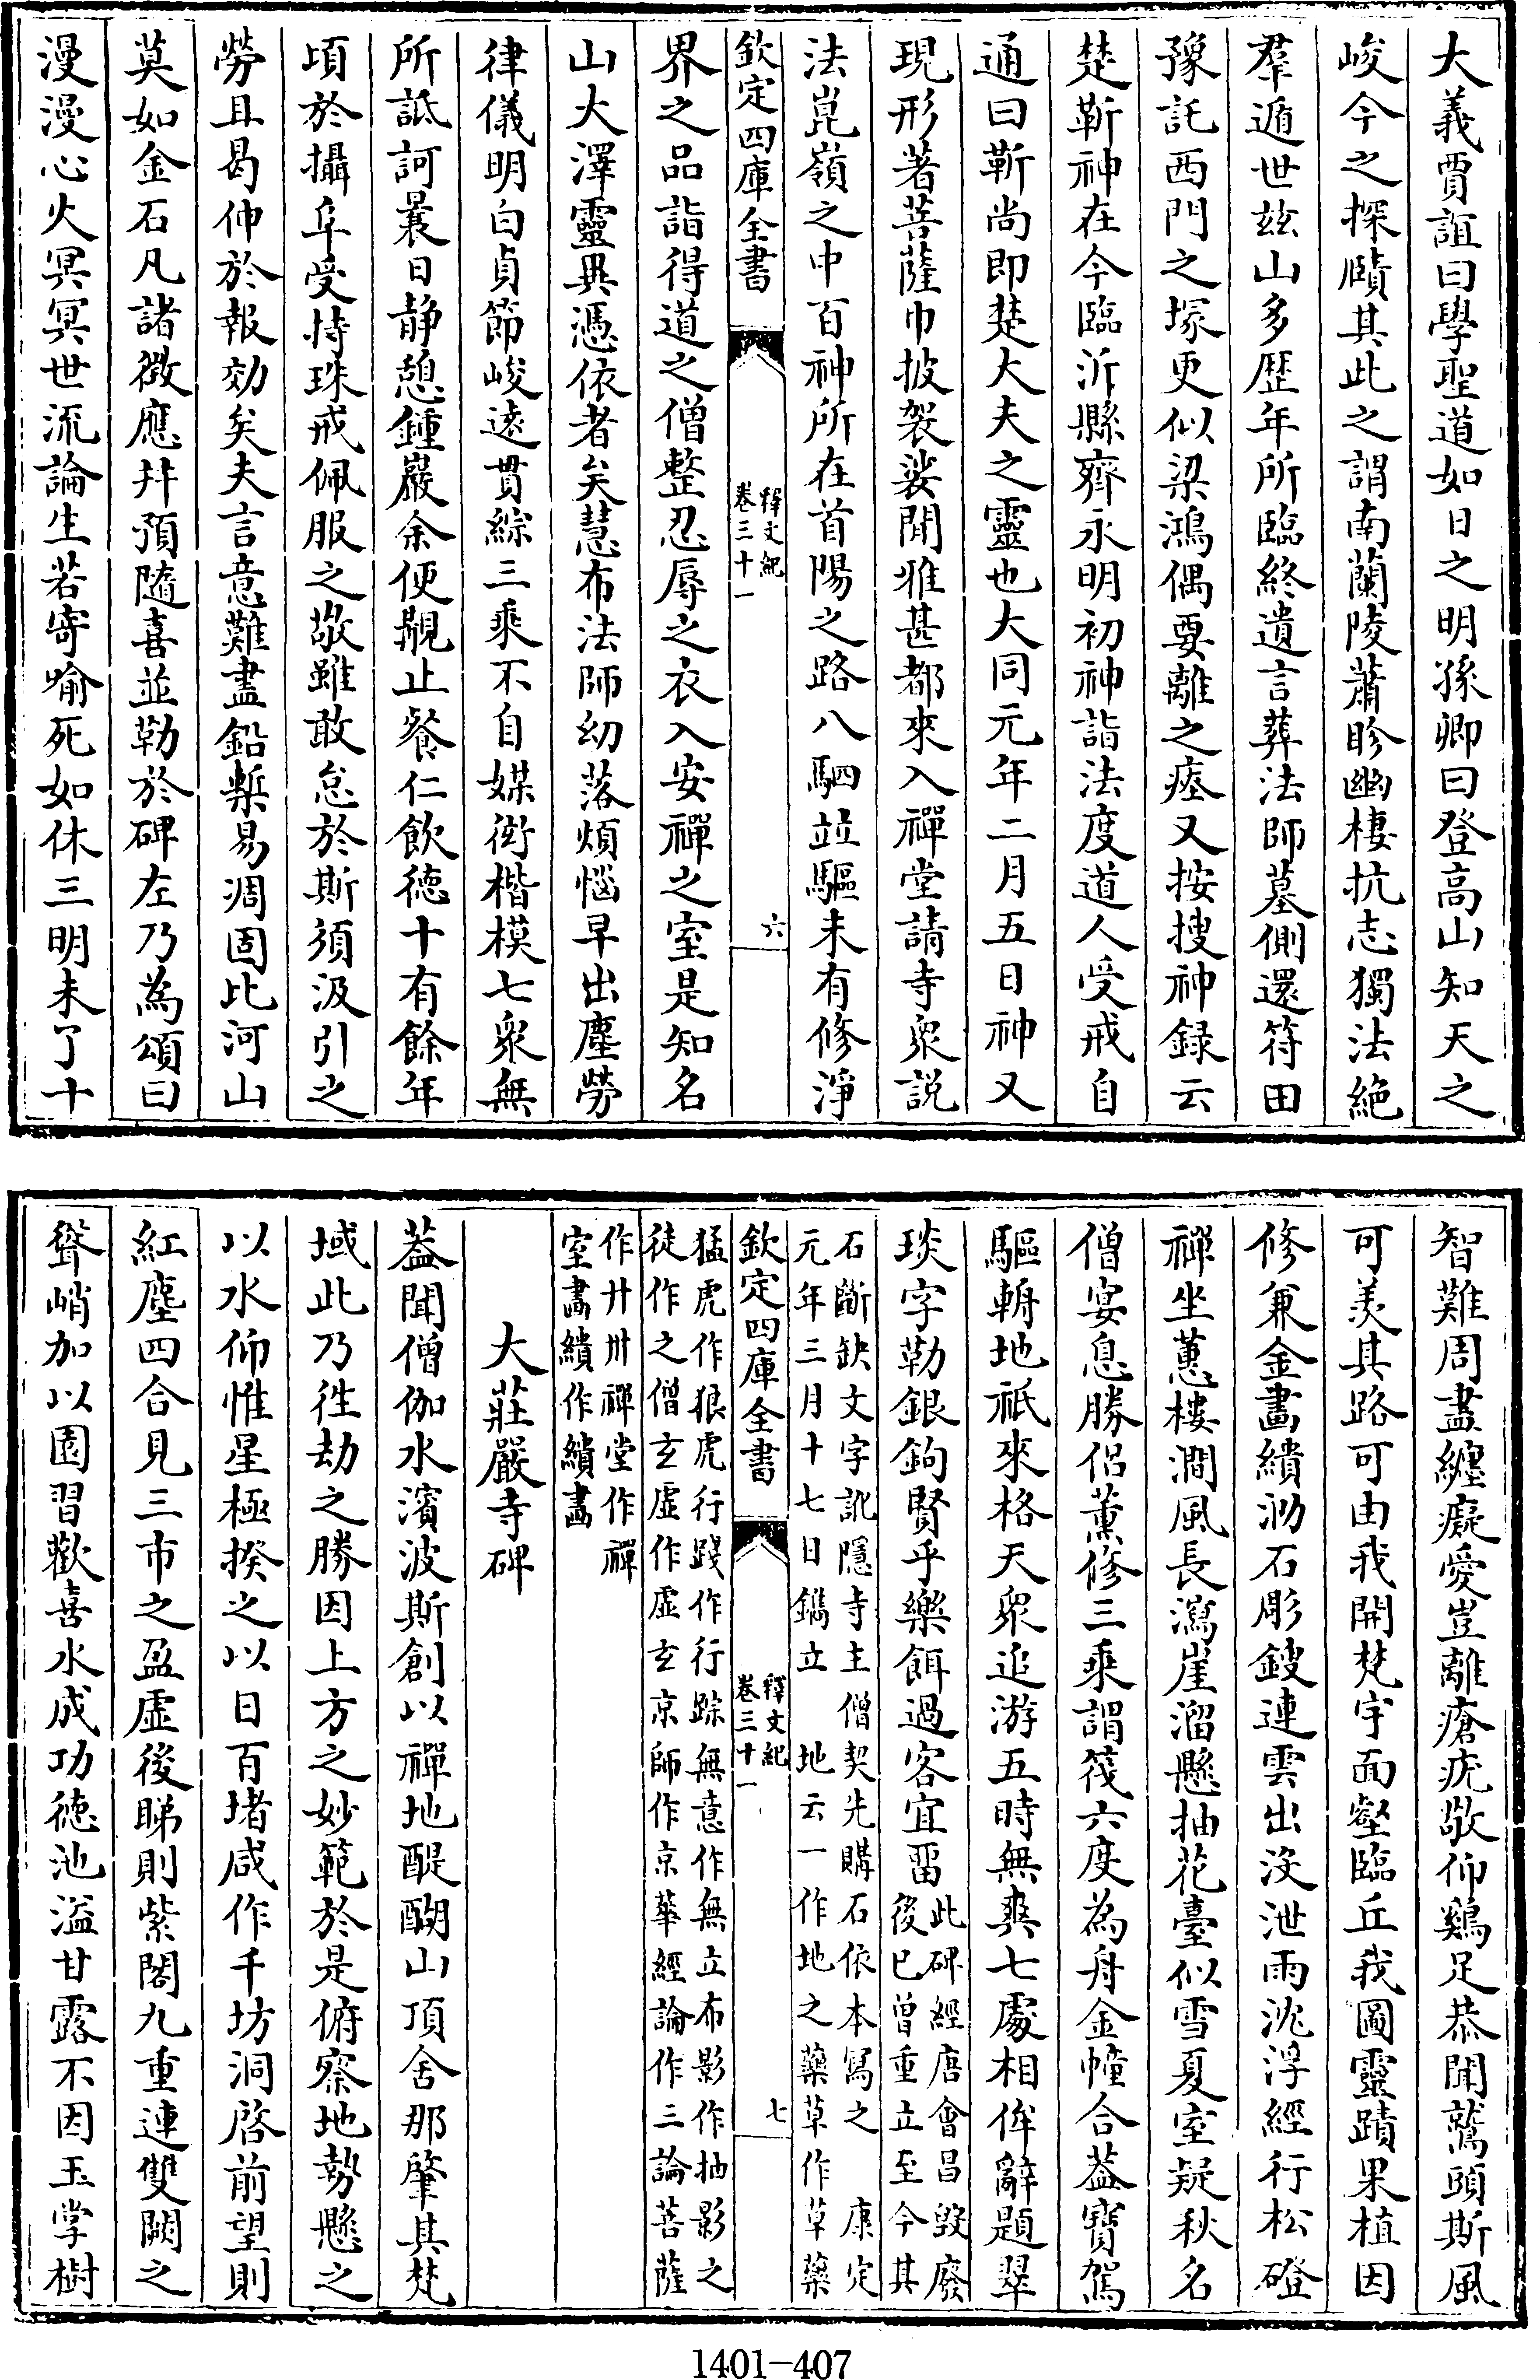 大義賈誼曰學聖道如日之明孫卿曰登高山知天之
峻今之探賾其此之謂南蘭陵蕭眕幽棲抗志獨法絶
羣遁世兹山多歴年所臨終遺言葬法師墓側還符田
豫託西門之塚更似梁鴻偶要離之瘞又按搜神録云
楚靳神在今臨沂縣齊永明初神詣法度道人受戒自
通曰靳尚即楚大夫之靈也大同元年二月五日神又
現形著菩薩巾披袈裟閒雅甚都來入禪堂請寺衆説
法崑嶺之中百神所在首陽之路八駟並驅未有修淨
欽定四庫全書
釋文紀
卷三十一
六
界之品詣得道之僧整忍辱之衣入安禪之室是知名
山大澤靈異憑依者矣慧布法師幼落煩惱早出塵勞
律儀明白貞節峻逺貫綜三乘不自媒衒楷模七衆無
所詆訶曩日静憩鍾巖余便覯止餐仁飲徳十有餘年
頃於攝阜受持珠戒佩服之敬雖敢怠於斯須汲引之
勞且曷伸於報効矣夫言意難盡鉛槧易凋固比河山
莫如金石凡諸徴應并預隨喜並勒於碑左乃為頌曰
漫漫心火冥冥世流論生若寄喻死如休三明未了十
智難周盡纏癡愛豈離瘡疣敬仰鷄足恭聞鷲頭斯風
可羨其路可由我開梵宇面壑臨丘我圖靈蹟果植因
修兼金畫繢泐石彫鎪連雲出没泄雨沈浮經行松磴
禪坐蕙樓澗風長瀉崖溜懸抽花臺似雪夏室疑秋名
僧宴息勝侣薫修三乘謂筏六度為舟金幢合葢寳駕
驅輈地祇來格天衆追游五時無爽七處相侔辭題翠
琰字勒銀鉤賢乎樂餌過客宜留此碑經唐會昌毁廢
後已曾重立至今其
石斷缺文字訛隱寺主僧契先購石依本冩之 康定
元年三月十七日鐫立 地云一作地之藥草作草藥
欽定四庫全書
釋文紀
卷三十一
七
猛虎作狼虎行踐作行踪無意作無立布影作抽影之
徒作之僧玄虚作虚玄京師作京華經論作三論菩薩
作廾卅禪堂作禪
室畵繢作繢畵
大莊嚴寺碑
葢聞僧伽水濱波斯創以禪地醍醐山頂舍那肇其梵
域此乃徃劫之勝因上方之妙範於是俯察地勢懸之
以水仰惟星極揆之以日百堵咸作千坊洞啓前望則
紅塵四合見三市之盈虚後睇則紫閣九重連雙闕之
聳峭加以園習歡喜水成功徳池溢甘露不因玉掌樹
1401-407